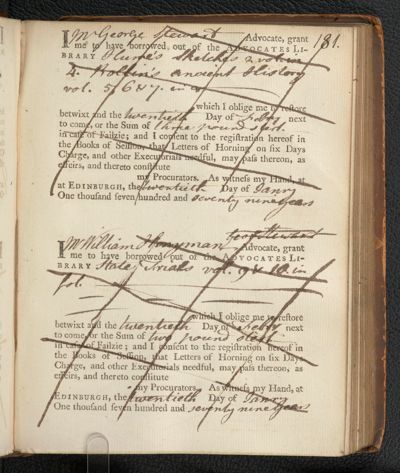 181.
I Mr George Steward Advocate, grant
me to have borrowed out of the ADVOCATES LI-
BRARY Hume's Sketches 2 vols in
4. Rollin's ancient History
vol. 5, 6 & 7. in
which I oblige me to restore
betwixt and the twentieth Day of Febry next
to come, or the Sum of three pound sterl.
in case of Failzie; and I consent to the registration hereof in
the Books of Session, that Letters of Horning on six Days
Charge, and other Executorials needful, may pass thereon, as
effeirs, and thereto constitute
my Procurators. As witness my Hand, at
at EDINBURGH, the twentieth Day of Janry
One thousand seven hundred and seventy nine years
Geo: Steward
I Mr William Honyman Advocate, grant
me to have borrowed out of the ADVOCATES LI-
BRARY State Trials vol. 9 & 10 in
fol.
which I oblige me to restore
betwixt and the twentieth Day of Febry next
to come, or the Sum of two pound sterl.
in case of Failzie; and I consent to the registration hereof in
the Books of Session, that Letters of Horning on six Days
Charge, and other Executorials needful, may pass thereon, as
effeirs, and thereto constitute
my Procurators. As witness my Hand, at
EDINBURGH, the twentieth Day of Janry
One thousand seven hundred and seventy nine years